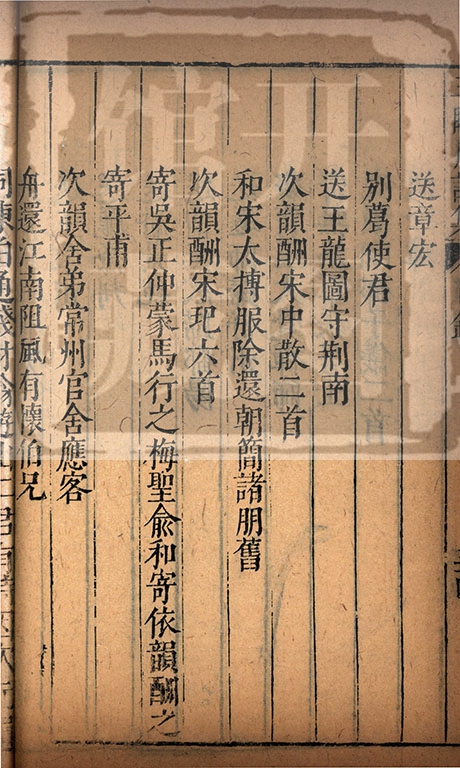 送章宏
別葛使君
送王龍圖守荆南
次韻酬宋中散二首
和宋太博服除還朝簡諸朋舊
次韻酬宋玘六首
寄吳正仲蒙馬行之梅聖俞和寄依韻酬之
寄平甫
次韻舍弟常州官舍應客
舟還江南阻風有懷伯兄
同陳伯通錢材翁遊山二君有詩